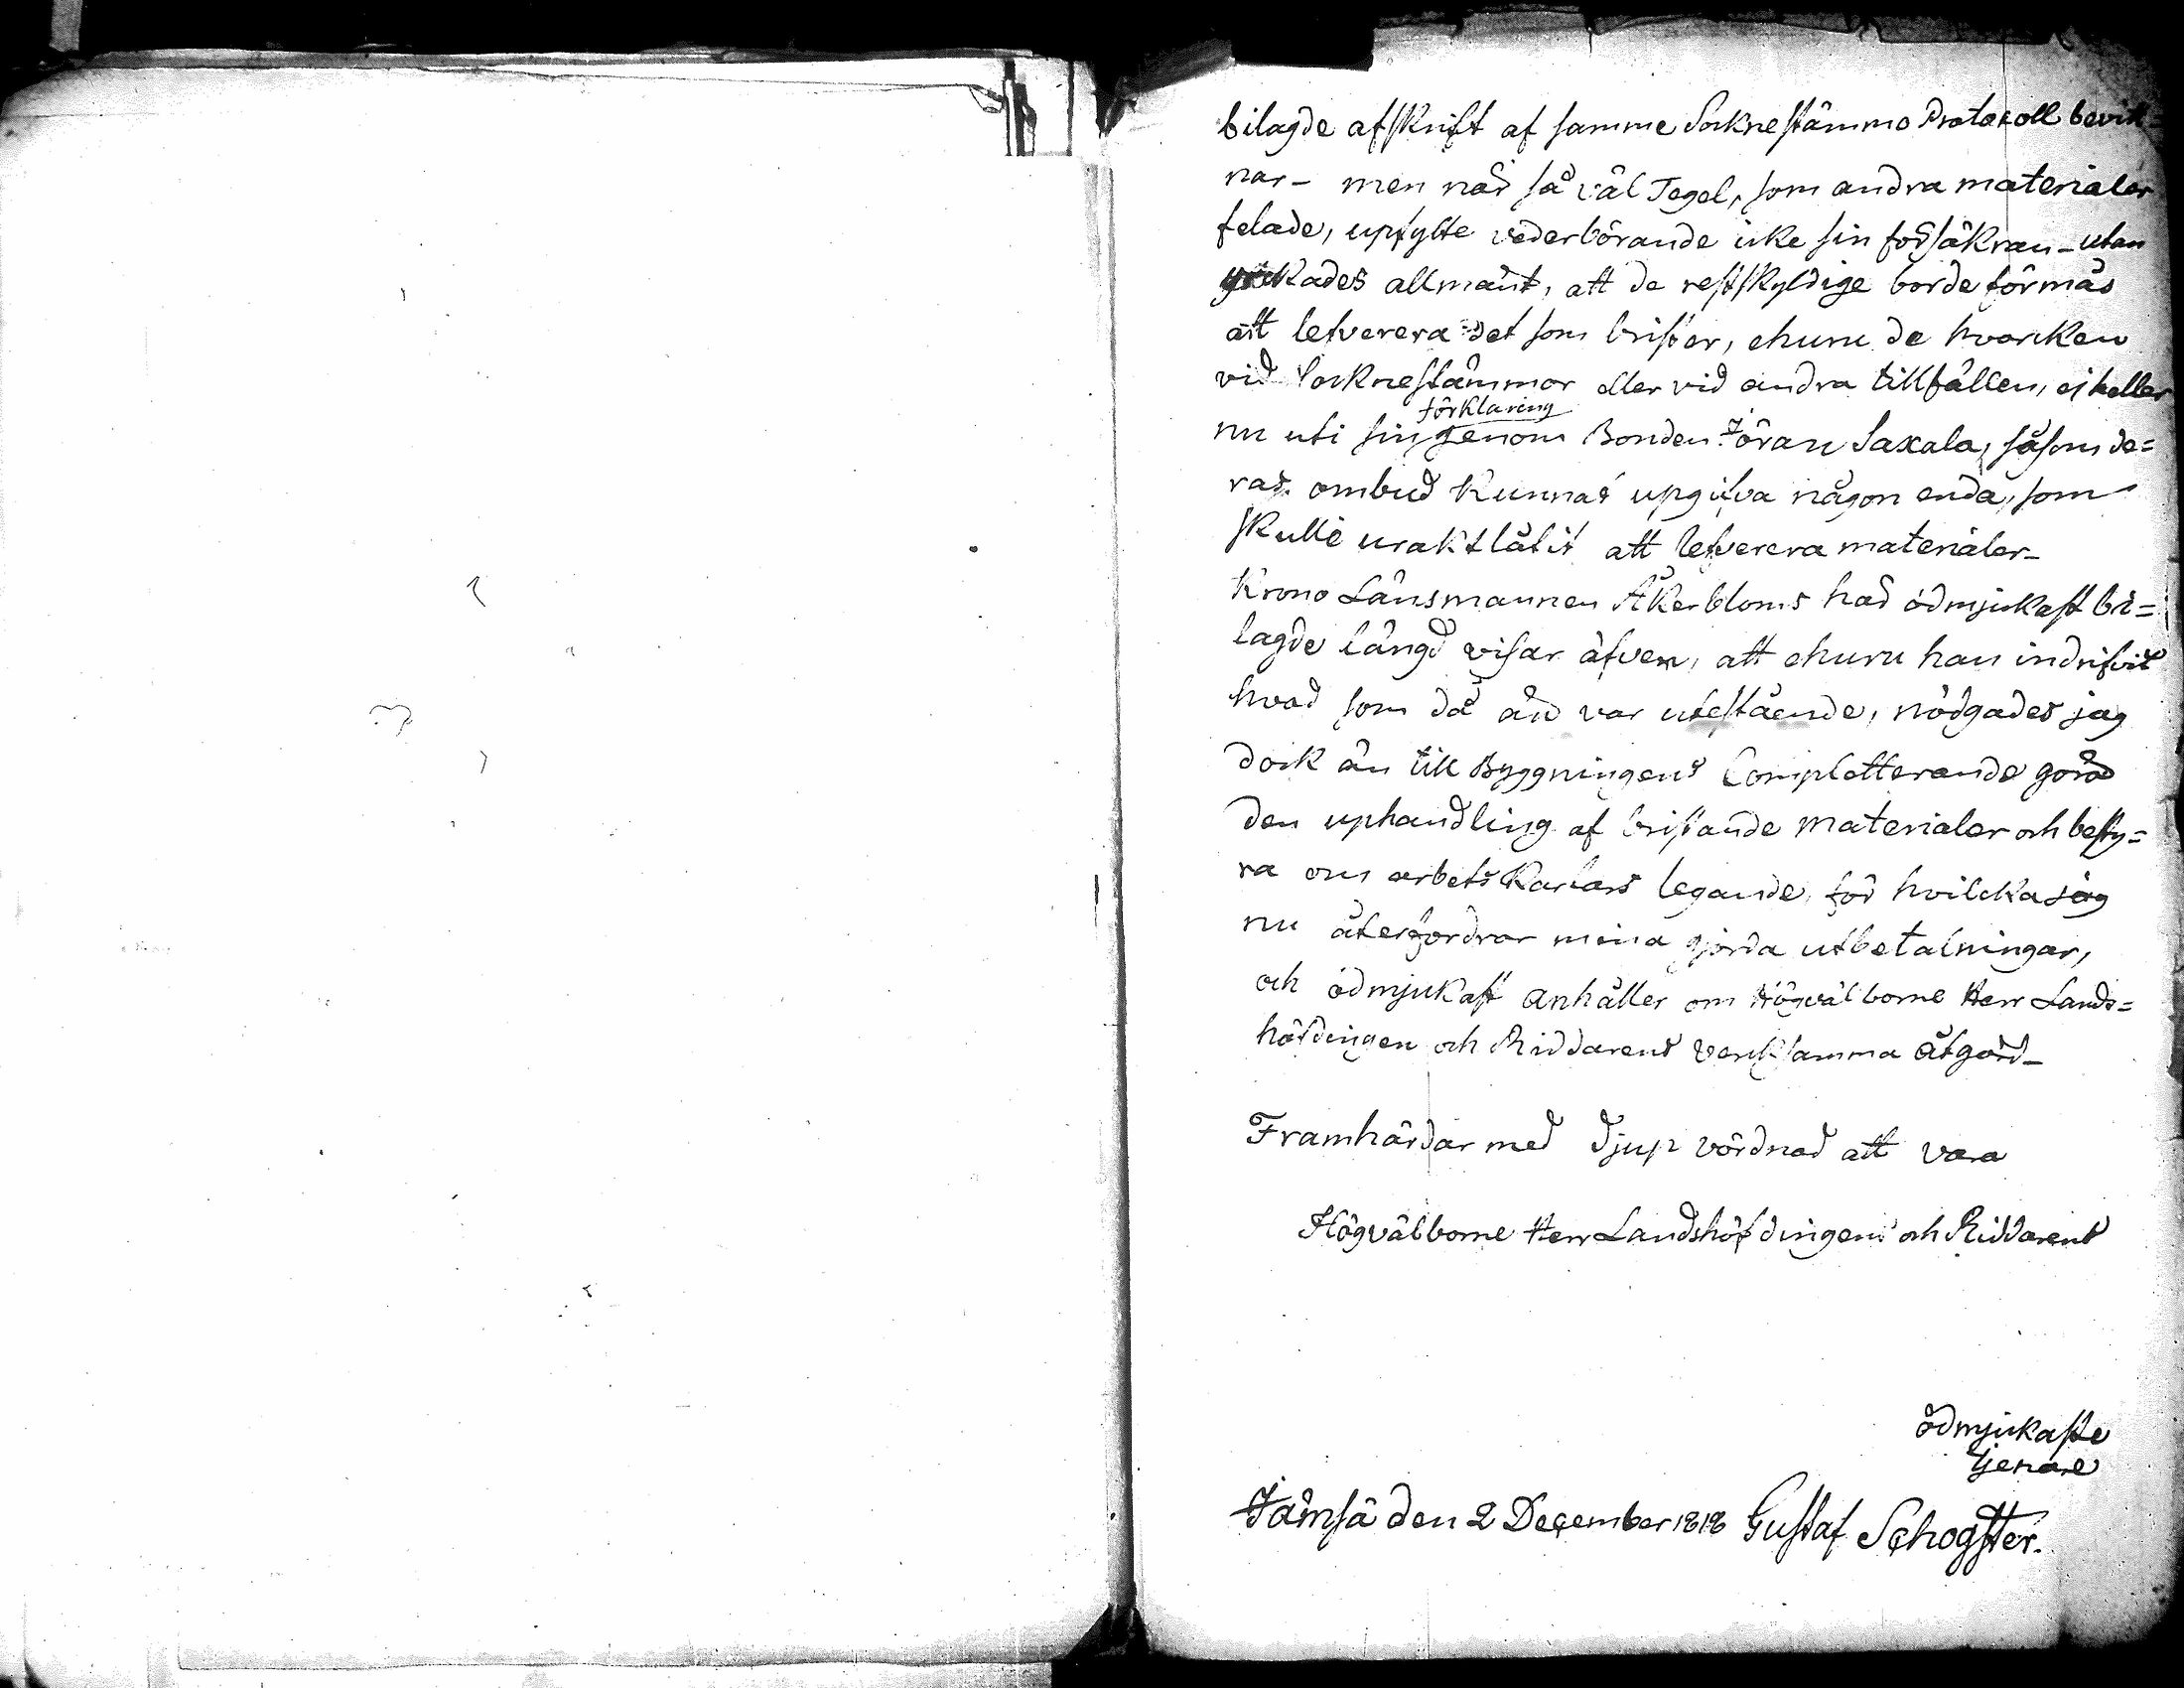 bilagde afskrift af samme Socknestämmo Protocoll bevitt=
nar- men när så väl Tegel, som andra materialer
felade, upfylte vederbörande icke sin försäkran - utan
yrkades allmänt, att de restskyldige borde förmås
att lefverera det som brister, ehuru de hvarcken
vid Socknestämmor eller vid andra tillfällen, ej heller
förklaring
nu uti sin genom Bonden Jöran Saxala, såsom de=
ras ombud kunnat upgifva någon enda, som
skulle uraktlåtit att lefverera materialer-
Krono Länsmannen Åkerbloms här ödmjukast bi=
lagde längd visar äfven, att ehuru han indrifvit
hvad som då än var utestående, nödgades jag
dock än till Byggningens Completterande göra
den uphandling af bristande materialer och besty=
ra om arbets Karlars legande, för hvilcka jag
nu återfordrar mina gjorda utbetalningar,
och ödmjukast anhåller om Högvälborne Herr Lands=
höfdingen och Riddarens verksamma åtgärd-
Framhärdar med djup vördnad att vara
Högvälborne Herr Landshöfdingens och Riddarens
ödmjukaste
tjenare
Jämsä den 2 December 1818 Gustaf Schogster.